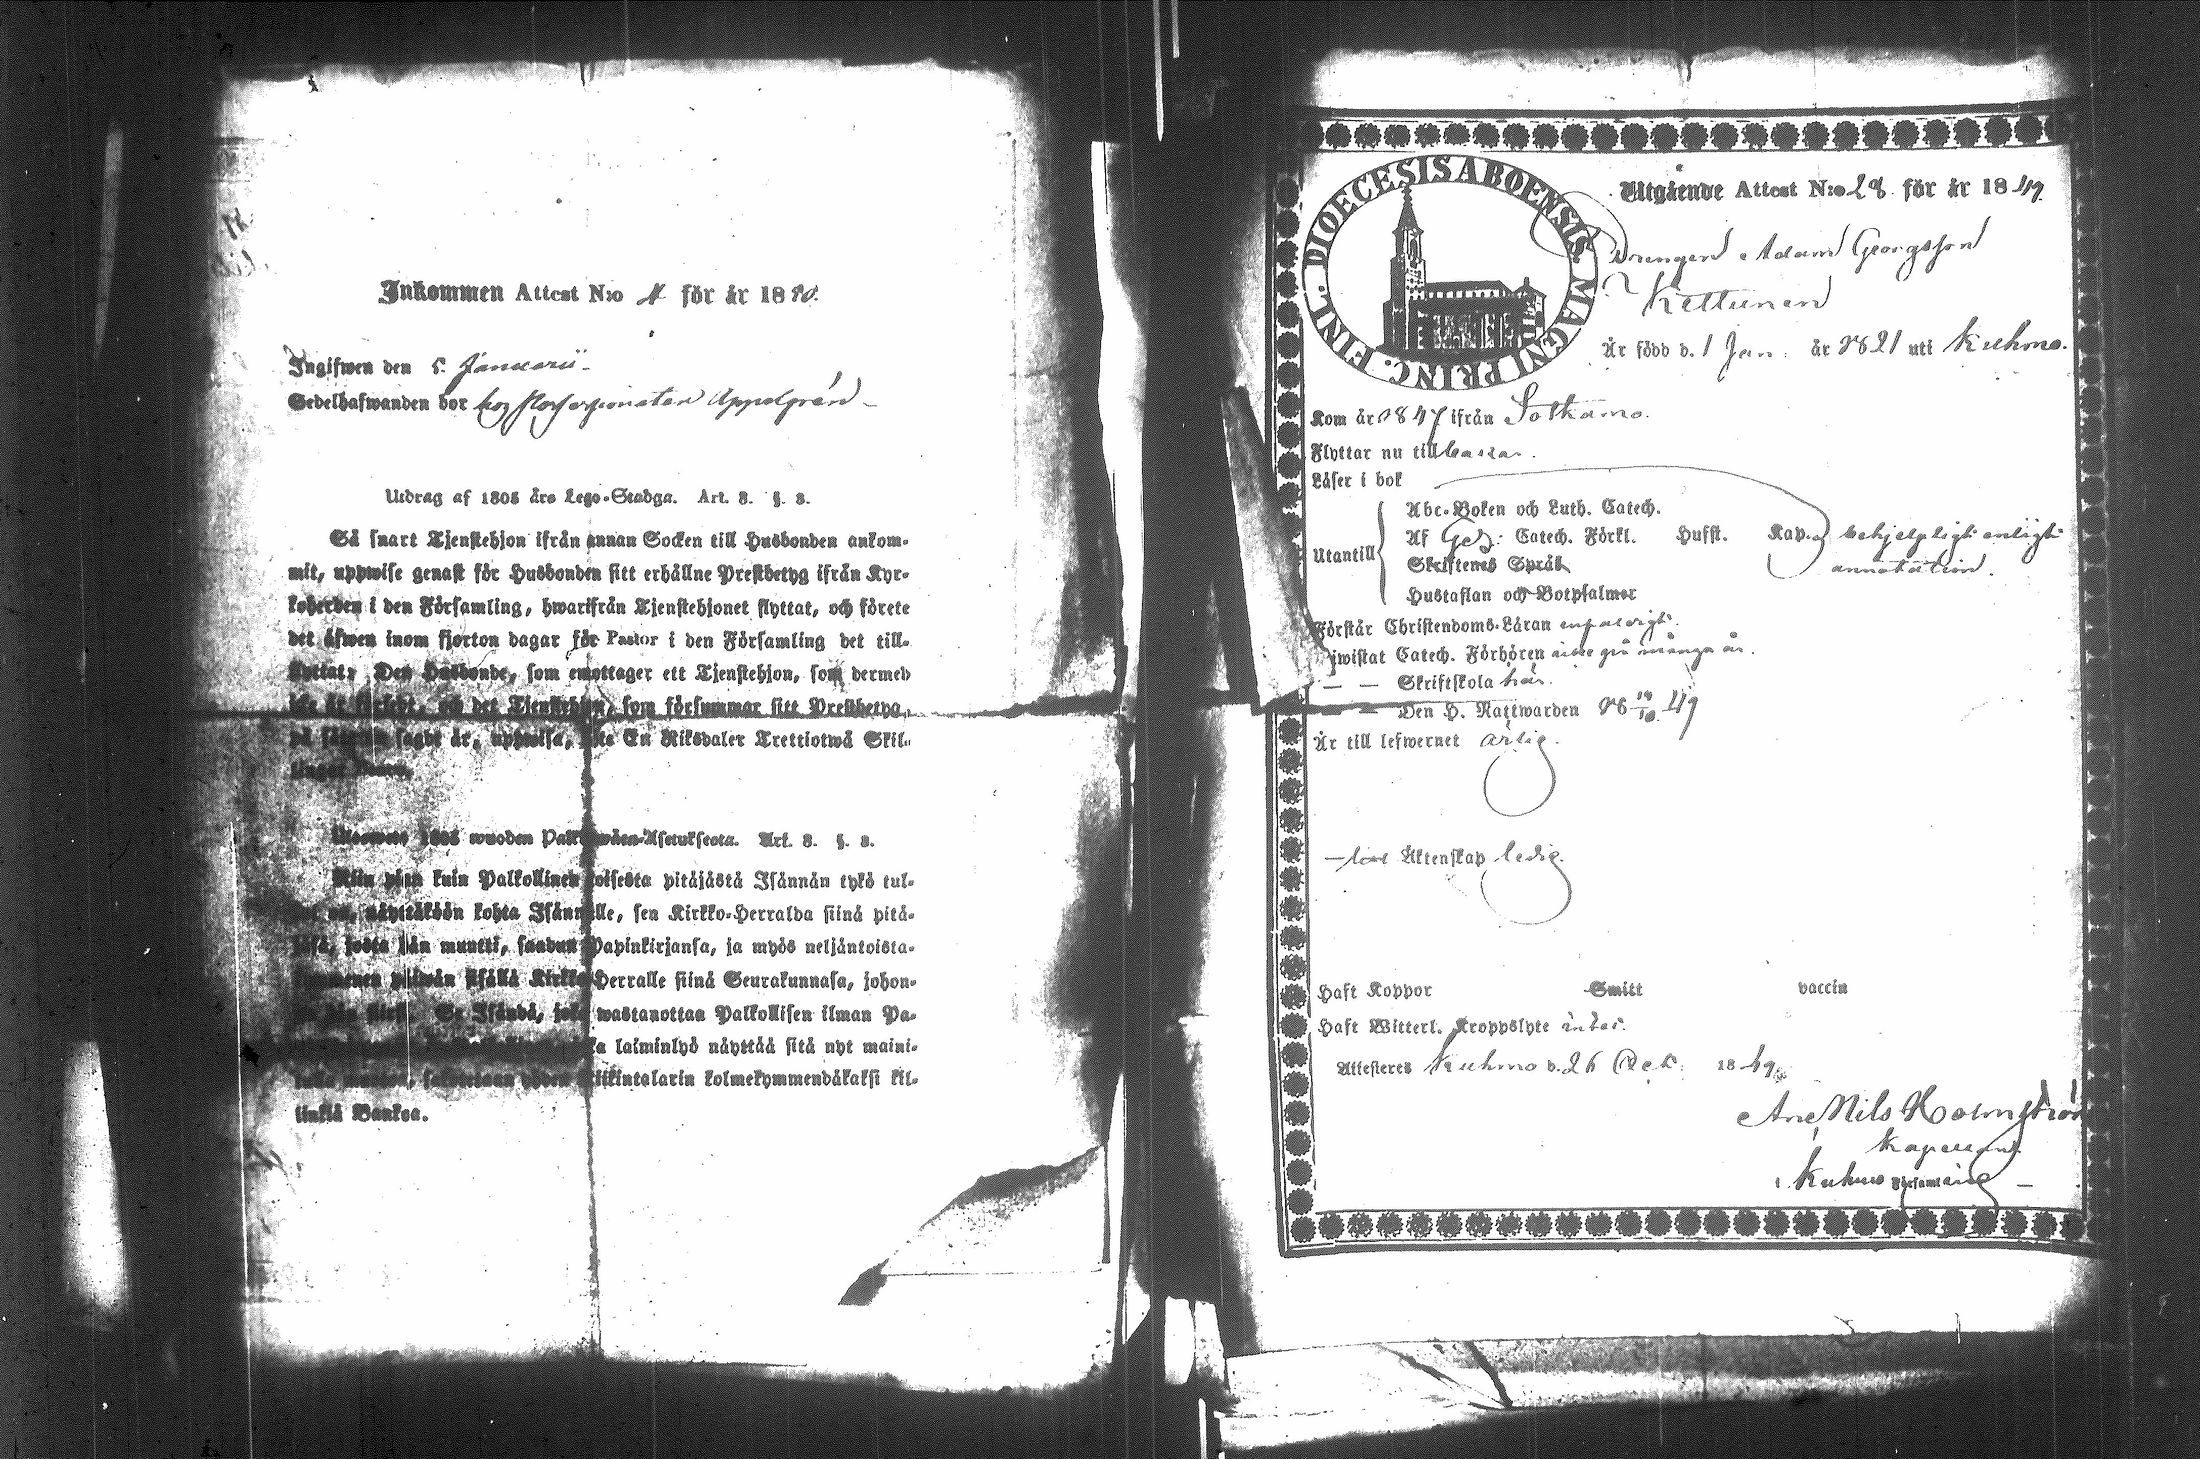 Inkommen Attest N:o 4 för år 1850.
Ingifwen den 5 Januarii
Sedelhafwanden bor hos Appelgrén
Utdrag af 1805 års Lego-Stadga. Art. 8. §. 8.
Så snart Tjenstehjon ifrån annan Socken till Husbonden ankom-
mit, uppwise genast för Husbonden sitt erhållne Prestbetyg ifrån Kyr-
koherden i den Församling, hwarifrån Tjenstehjonet flyttat, och förete
det äfwen inom fjorton dagar för Pastor i den Församling det till-
flyttat; Den Husbonde, som emottager ett Tjenstehjon, som dermed
icke är försedt, och det Tjenstehjon, som försummar sitt Prestbetyg,
på sätt sagdt är, uppwisa, böte En Riksdaler Trettiotwå Skil-
lingar Banco.
wuoden Palkowäen-Asetuksesta. Art. 8. §. 8.
Niin pian kuin Palkollinen toisesta pitäjästä Isännän tykö tul-
lut on, näyttäköön kohta Isännälle, sen Kirkko-Herralda siinä pitä-
jäsä, josta hän muutti, saadun Papinkirjansa, ja myös neljäntoista-
kymmenen päiwän sisällä Kirkko-Herralle siinä Seurakunnasa, johon-
ka hän siirsi. Se Isändä, joka wastanottaa Palkollisen ilman Pa-
laiminlyö näyttää sitä nyt maini-
Riikintalarin kolmekymmendäkaksi kil-
linkiä Bankoa.
DIOECESIS ABOENSIS. MAGNI PRINC. FINL.
Utgående Attest N:o 28 för år 1849.
Drengen Adam Georgsson
Kettunen
Är född d. 1 Jan. år 1821 uti Kuhmo.
Kom år 1847 ifrån Sotkamo.
Flyttar nu till
Läser i bok
Utantill
Abc-Boken och Luth. Catech.
Af Catech. Förkl. Husst. Kap.
Skriftenes Språk
Hustaflan och Botpsalmer
behjelpligt enligt
annotation.
Förstår Christendoms-Läran enfaldigt.
jwistat Catech. Förhören icke på många år.
— — Skriftskola här.
— — Den H. Nattwarden 18 14/10 49
Är till lefwernet ärlig.
— Äktenskap ledig.
Haft Koppor Smitt vaccin
Haft Witterl. Kroppslyte intet.
Attesteres Kuhmo d. 26 Oct. 1849.
Nils Holmström
Kapellan
i Kuhmo Församling